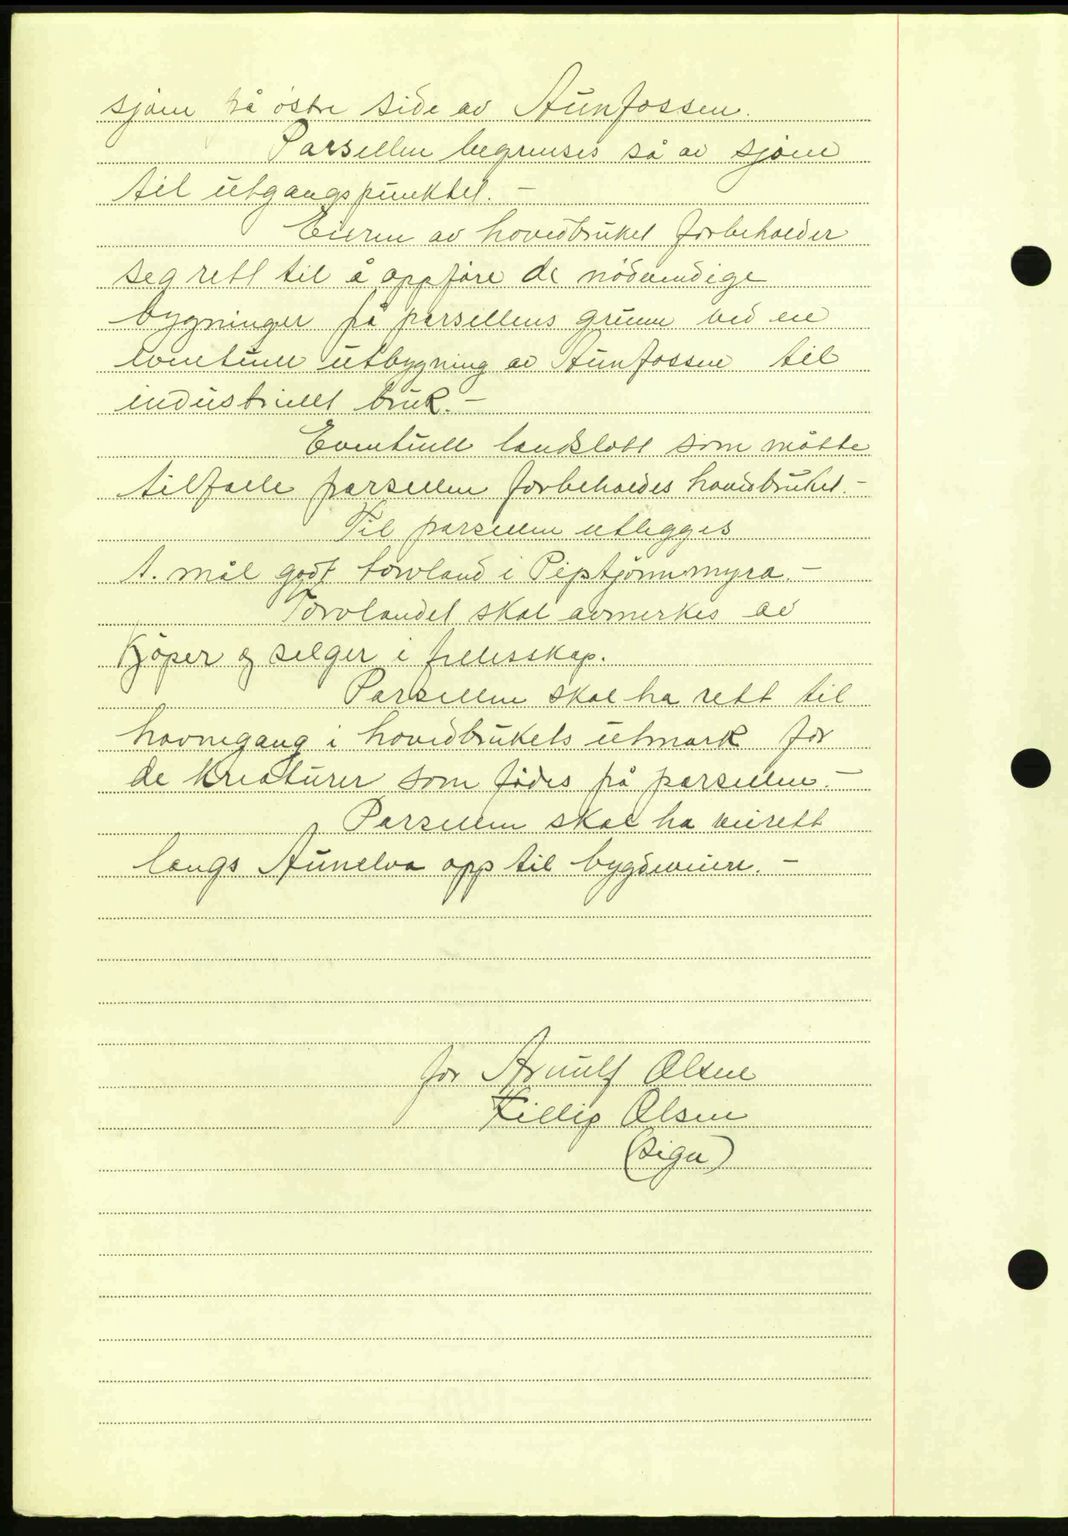 sjøen på östre side av Aunfossen.
Parsellen begrenses så av sjøen
til utgangspunktet. –
Eieren av hovedbruket forbeholder
seg rett til å oppføre de nödvendige
bygninger på parsellens grunn ved en
eventuell utbygning av Aunfossen til
industrielt bruk. –
Eventuell landslott som måtte
tilfalle parsellen forbeholdes hovedbruket. –
Til parsellen utlegges
1. mål godt torvland i Piptjønnmyra. –
Torvlandet skal avmerkes av
kjöper og selger i fellesskap.
Parsellen skal ha rett til
havnegang i hovedbrukets utmark for
de kreaturer som födes på parsellen. –
Parsellen skal ha veirett
langs Aunelva opp til bygdeveien. –
for Arnulf Olsen
Fillip Olsen
(sign)